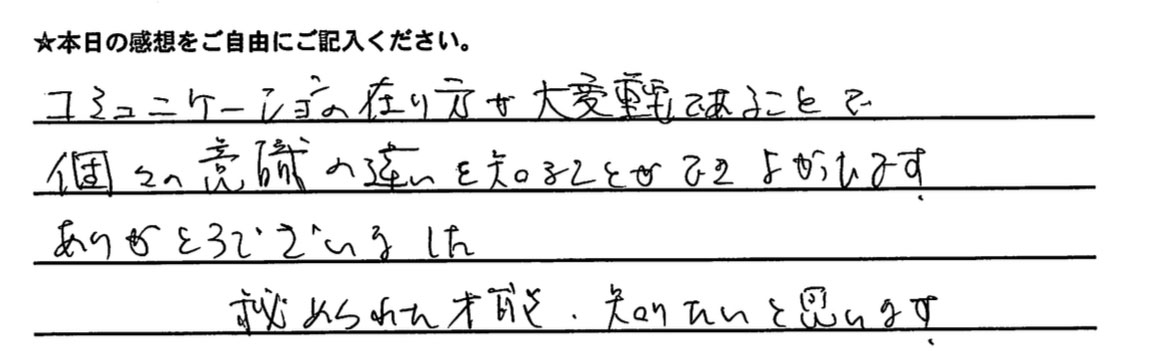 ☆本日の感想をご自由にご記入ください。
コミュニケーションの在り方が大変重宅であることで
個々の意識の違いを知ることができ よかったです
ありがとうございました
秘められた才能、知りたいと思います